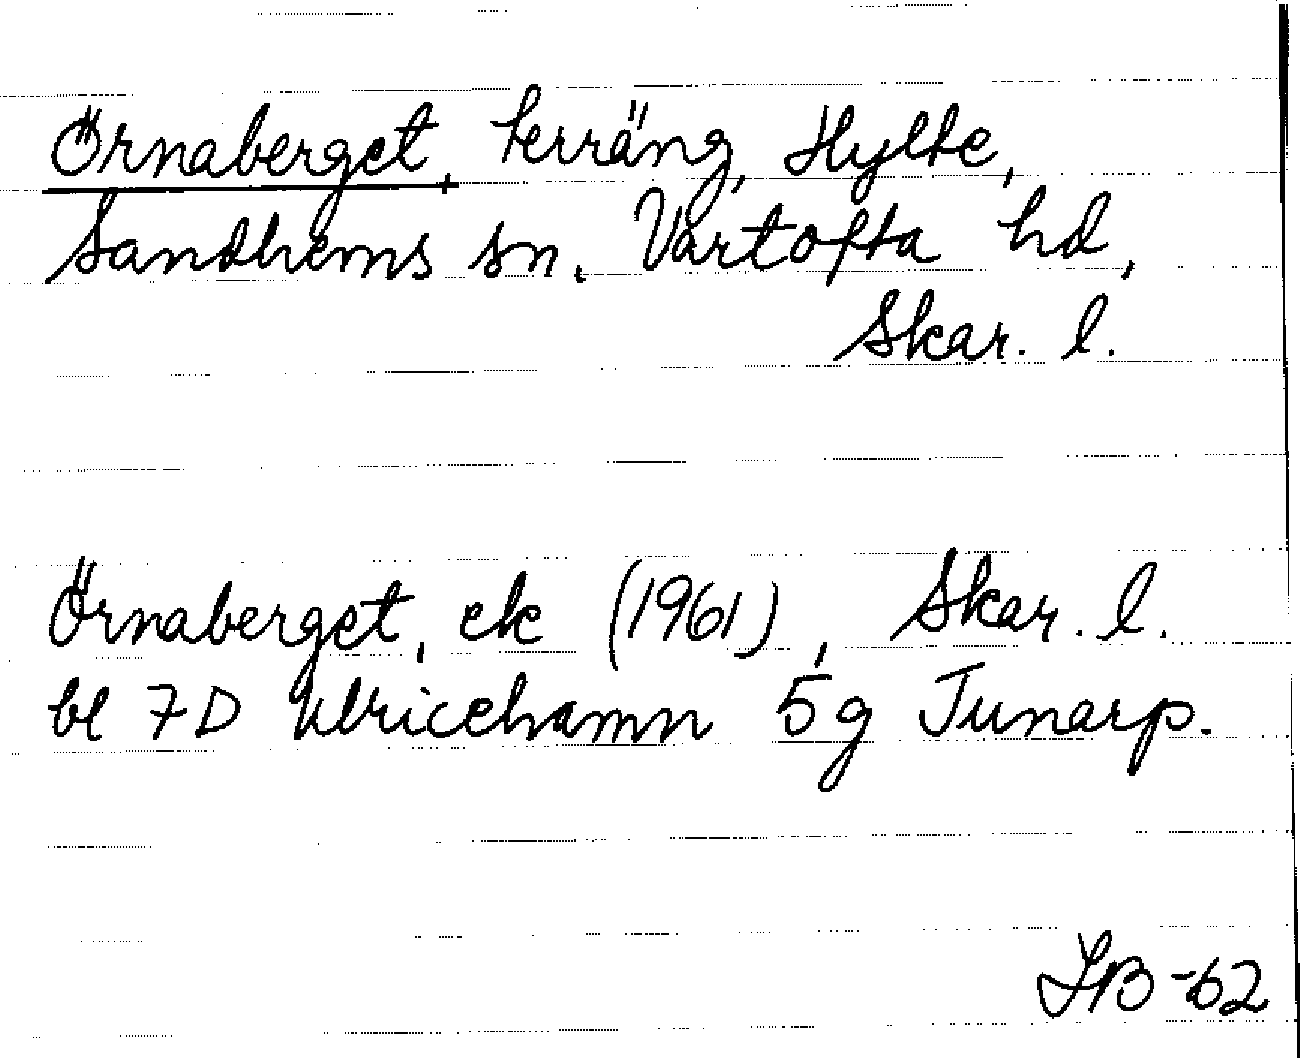 Örnaberget, terräng, Hylte,
Sandhems sn. Vartofta hd,
Skar. l.
Örnaberget, ek (1961), Skar. l.
bl 7D Ulricehamn 5g Junarp.